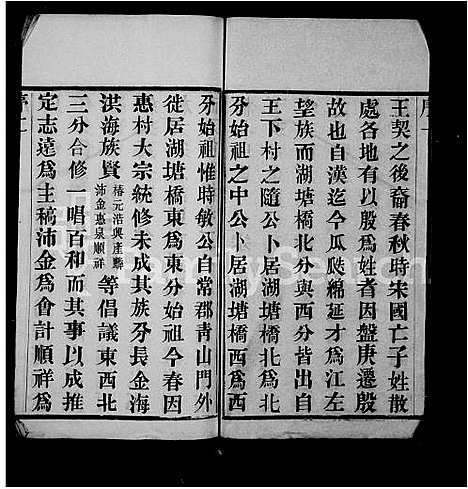 序一
王契之後裔春秋時宋國亡子姓散
處各地有以殷爲姓者因盤庚遷殷
故也自漢迄今瓜瓞綿延才爲江左
望族而湖塘橋北分與西分皆出自
王下村之隨公卜居湖塘橋北爲北
分始祖之中公卜居湖塘橋西爲西
分始祖惟時敏公自常郡青山門外
徙居湖塘橋東爲東分始祖今春因
惠村大宗統修未成其族分長金海
洪海族賢椿元浩興產驊沛金惠泉順祥等倡議東西北
三分合修一唱百和而其事以成推
定志達爲主稿沛金爲會計順祥爲
序二